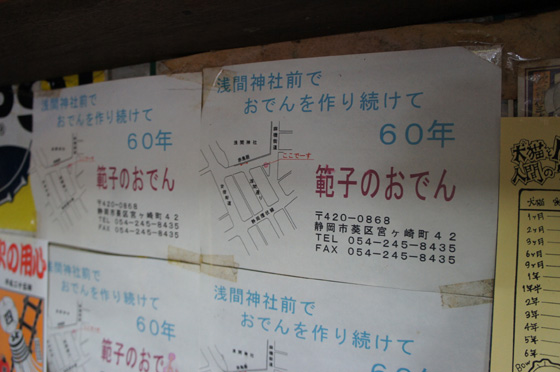 浅間神社前で
おでんを作り続けて
60年
浅間神社
ここでーす
範子のおでん
〒420-0868
静岡市葵区宮ヶ崎町42
TEL 054-245-8435
FAX 054-245-8435
浅間神社前で
おでんを作り続けて
60年
浅間神社
範子のおでん
〒420-0868
静岡市葵区宮ヶ崎町42
TEL 054-245-8435
FAX 054-245-8435
の用心
浅間神社前で
おでんを作り続けて
60年
範子のおで
浅間神社前で
おでんを作り続けて
60年
犬猫と
人間の
犬猫
1ヶ月
2ヶ月
3ヶ月
6ヶ月
9ヶ月
1年
1年半
2年
3年
4年
5年
6年